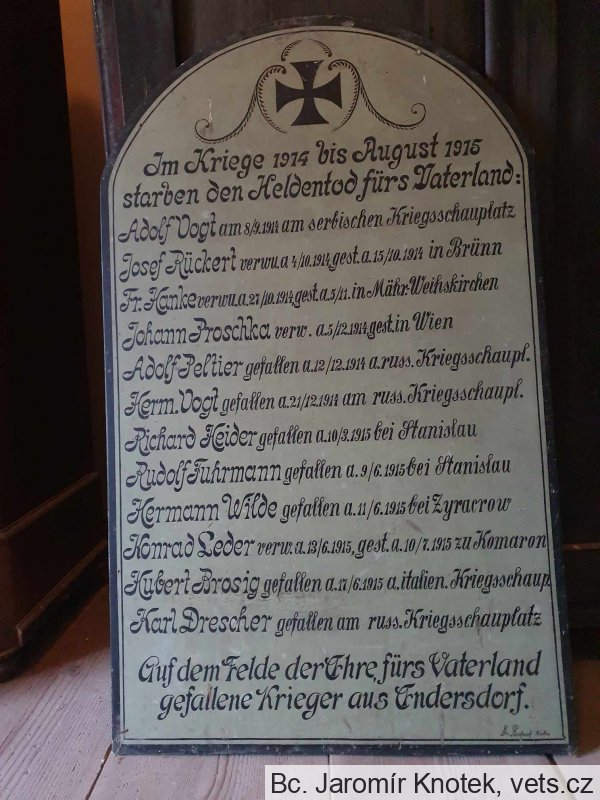 Im Kriege 1914 bis August 1915
starben den Heldentod fürs Vaterland:
Adolf Vogt am 8/9.1914 am serbischen Kriegsschauplatz
Josef Rückert verwu. a 4/10.1914, gest. a. 15/10.1914 in Brünn
Fr. Hanke verwu. a. 27/10.1914, gest. a. 5/11. in Mähr. Weihskirchen
Johann Proschka verw. a. 5/12.1914, gest. in Wien
Adolf Peltier gefallen a. 12/12.1914 a. russ. Kriegsschaupl.
Herm. Vogt gefallen a. 21/12.1914 am russ. Kriegsschaupl.
Richard Heider gefallen a. 10/3.1915 bei Stanislau
Rudolf Fuhrmann gefallen a. 9/6.1915 bei Stanislau
Hermann Wilde gefallen a. 11/6.1915 bei Zyracrow
Konrad Leder verw. a. 13/6.1915, gest. a. 10/7.1915 zu Komaron
Hubert Brosig gefallen a. 17/6.1915 a. italien. Kriegsschaup.
Karl Drescher gefallen am russ. Kriegsschauplatz
Auf dem Felde der Ehre, fürs Vaterland
gefallene Krieger aus Endersdorf.
Bc. Jaromír Knotek, vets.cz